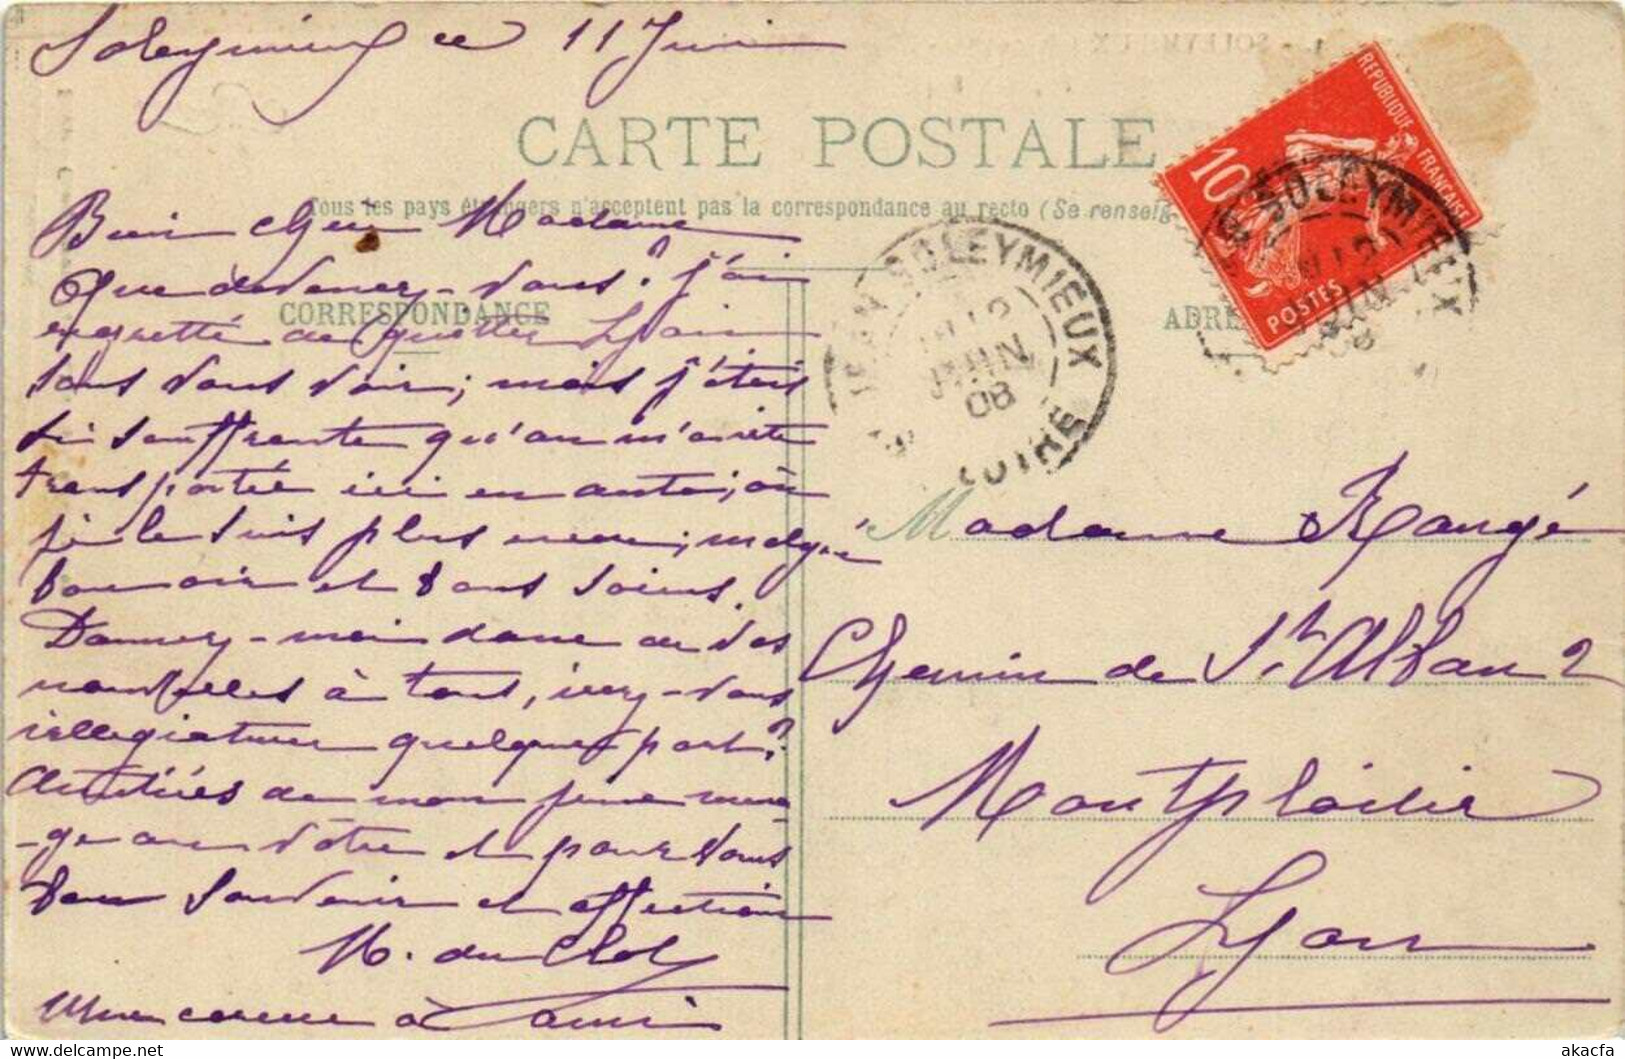 Soleymieux ce 11 Juin
SOLEYMIEUX
CARTE POSTALE
Tous les pays étrangers n'acceptent pas la correspondance au recto (Se renseig
CORRESPONDANCE
ADRE
Bien chère Madame
Que devenez-vous? j'ai
regretté de quitter Lyon
sans vous voir; mais j'étais
si souffrante qu'on m'a vite
transportée ici en auto; où
je le suis plus encore; malgré
bon air et bons soins.
Donnez-moi donc de vos
nouvelles à tous, irez-vous
villégiature quelque part?
Amitiés de mon jeune ména
-ge au vôtre et pour vous
bon souvenir et affection
M. du
Une caresse à
RÉPUBLIQUE FRANÇAISE
10
POSTES
SOLEYMIEUX
JUIN
08
SOLEYMIEUX
JUIN
08
LOIRE
Madame Rangé
Chemin de St Alban 2
Montplaisir
Lyon
akacfa